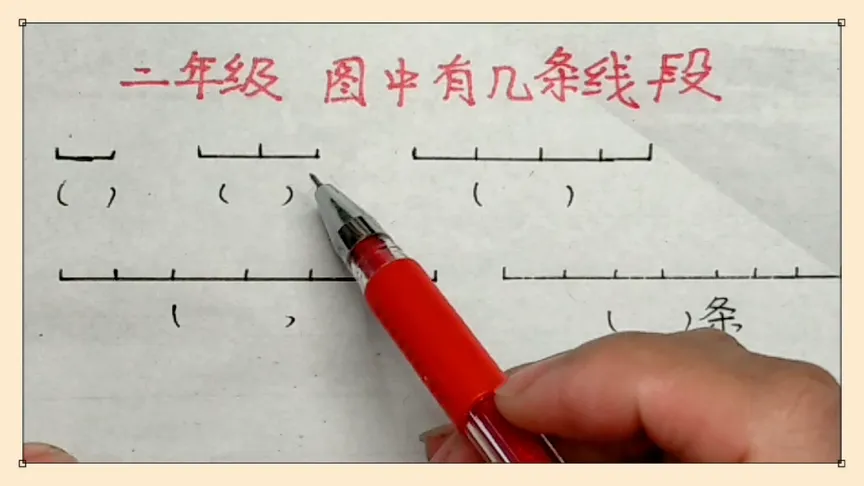 二年级 图中有几条线段
( ) ( ) ( )
( ) ( )条